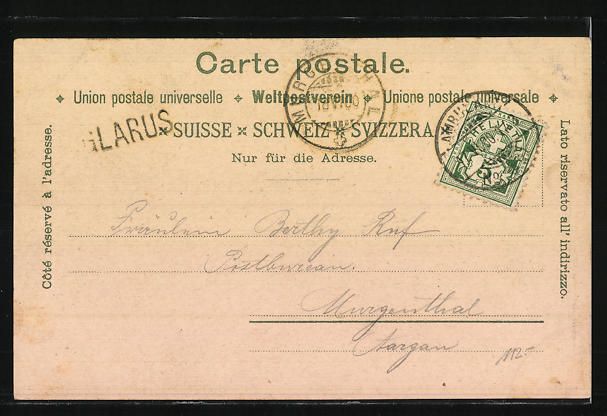 Carte postale.
Union postale universelle Weltpostverein Unione postale universale
SUISSE × SCHWEIZ × SVIZZERA
Nur für die Adresse.
GLARUS
Côté réservé à l'adresse.
Lato riservato all' indirizzo.
HELVETIA
5
Fräulein Berthy Ruf
Postbureau.
Murgenthal
Aargau